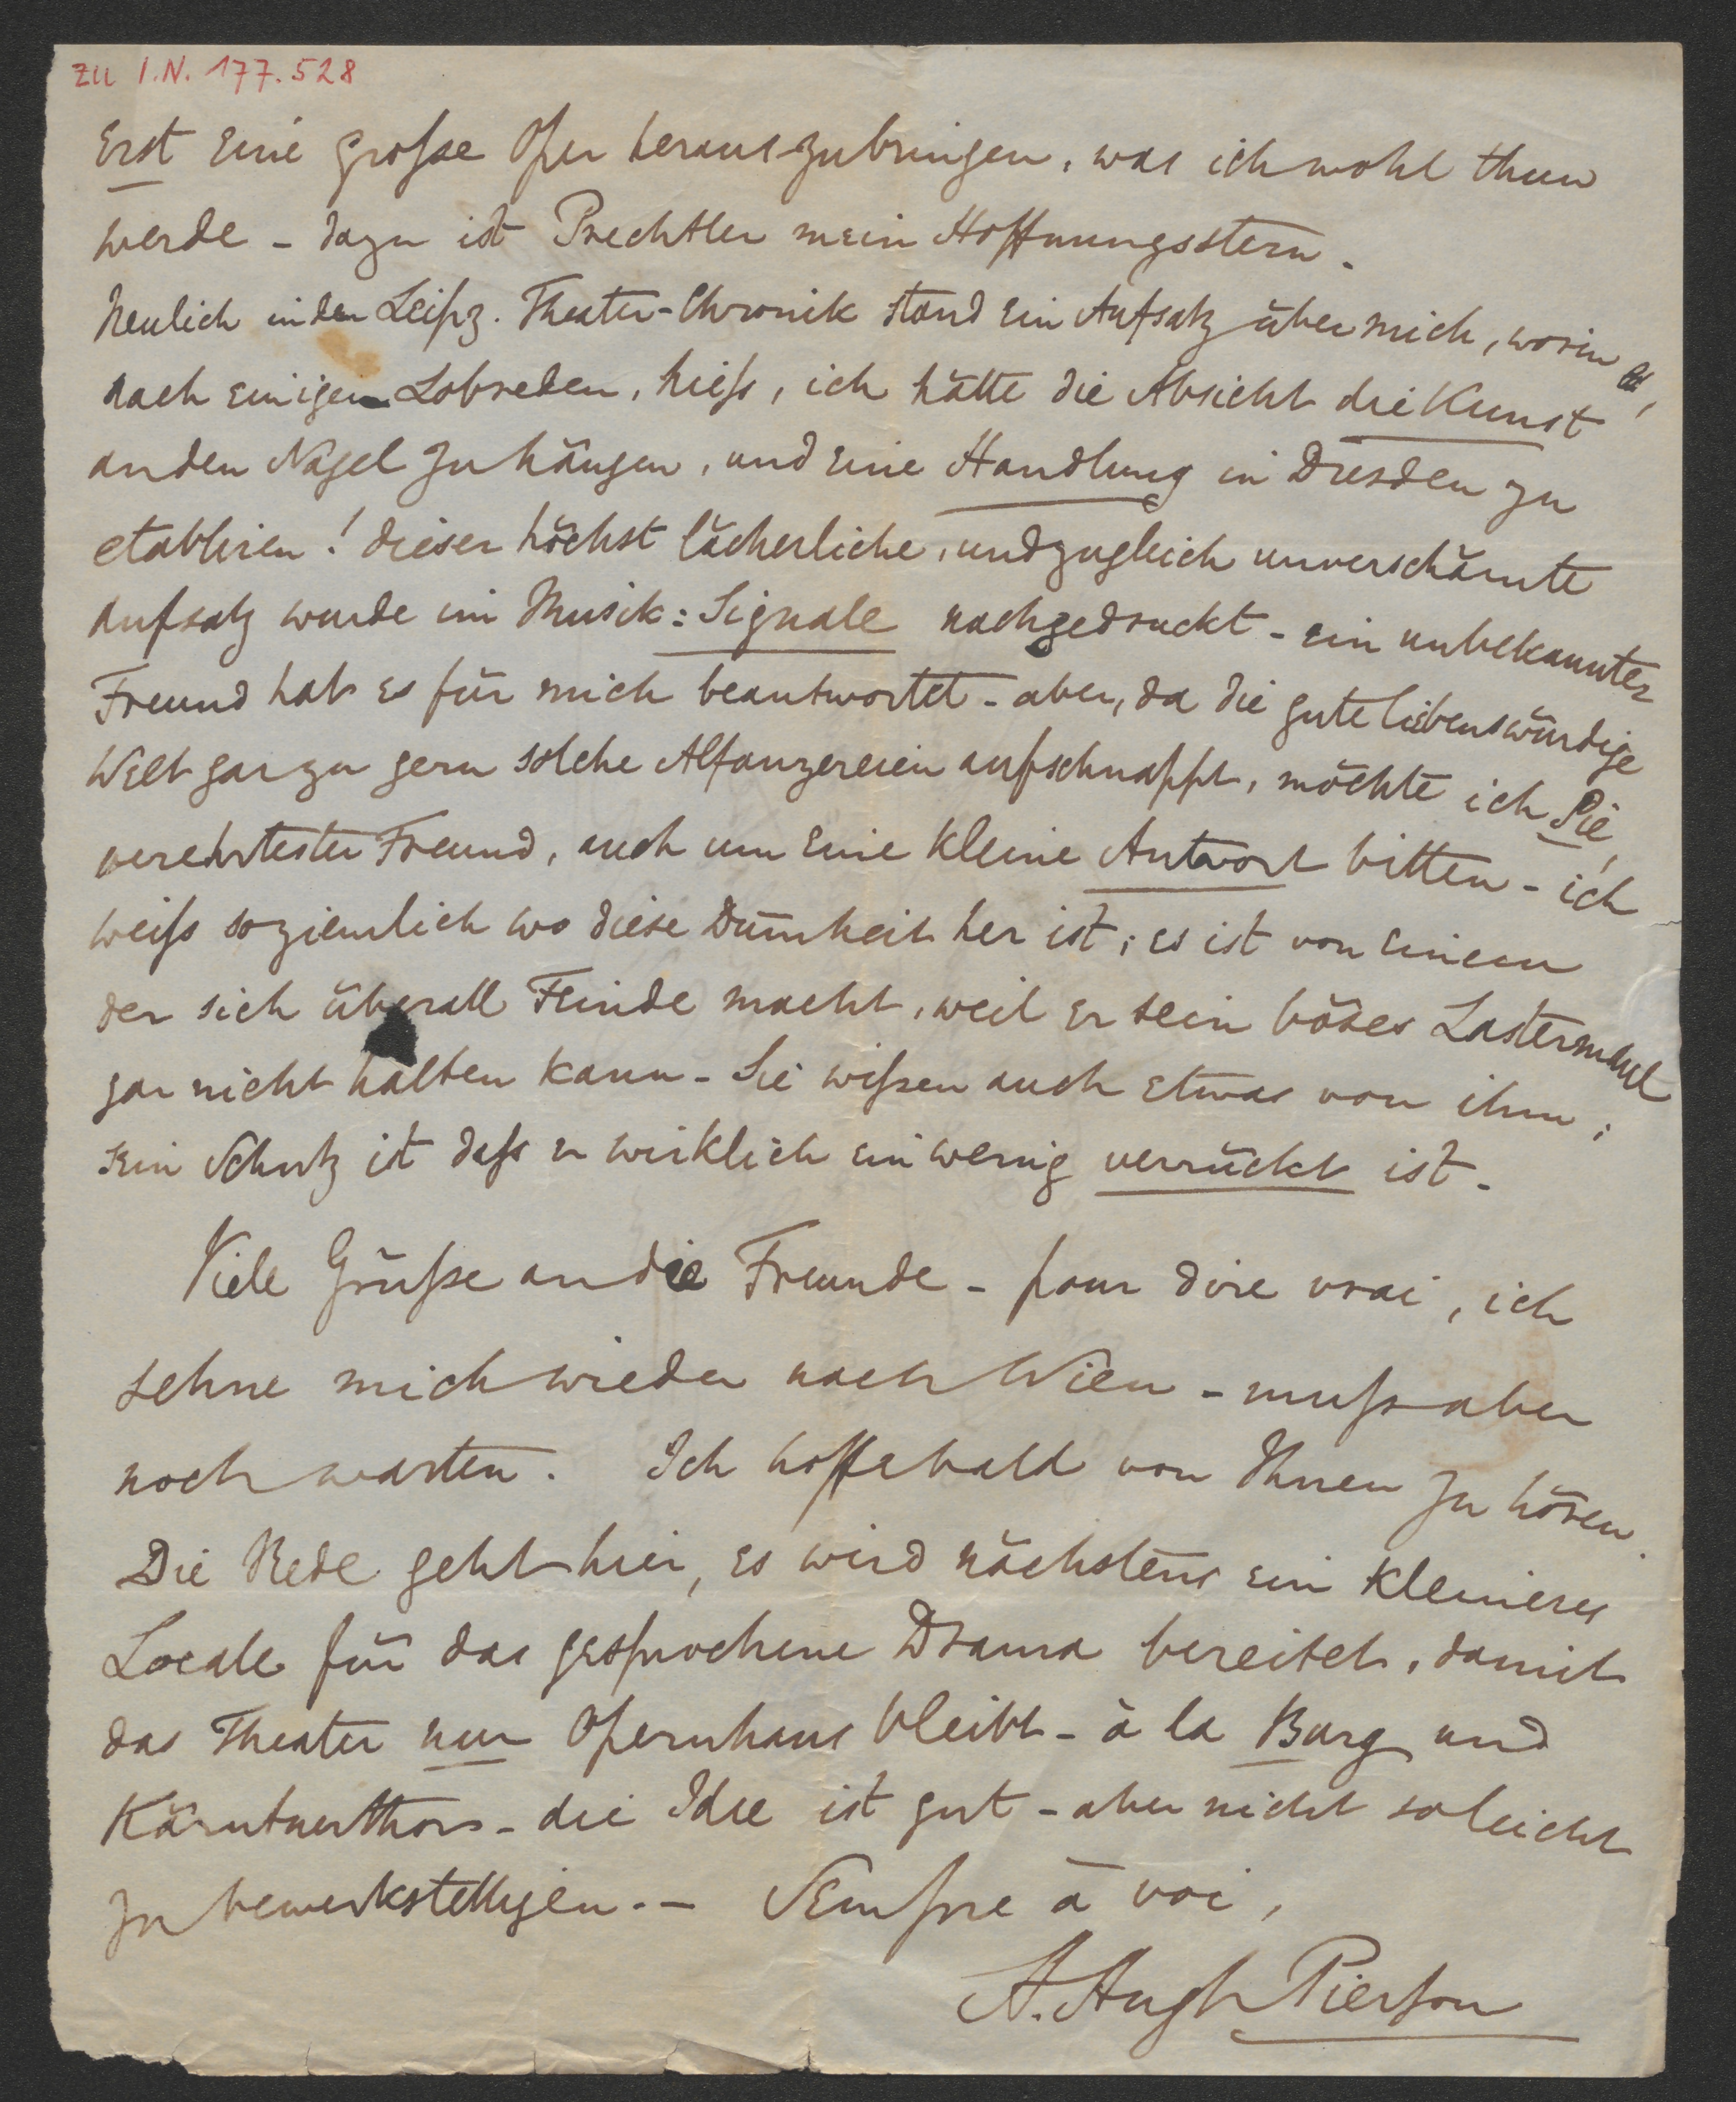 zu I.N. 177.528
Erst eine grosse Oper herauszubringen, was ich wohl thun
werde - dazu ist Prechtler mein Hoffnungsstern.
Neulich in der Leipz. Theater-Chronik stand ein Aufsatz über mich, worin es,
nach einigen Lobreden, hiess, ich hätte die Absicht die Kunst
an den Nagel zu hängen, und eine Handlung in Dresden zu
etabliren! dieser höchst lächerliche, und zugleich unverschämte
Aufsatz wurde im Musik: Signale nachgedruckt - ein unbekannter
Freund hat es für mich beantwortet - aber, da die gute liebenswürdige
Welt gar zu gern solche Alfanzereien aufschnappt, möchte ich Sie,
verehrtester Freund, auch um eine kleine Antwort bitten - ich
weiss so ziemlich wo diese Dum̄heit her ist; es ist von einem
der sich überall Feinde macht, weil er sein böses Lastermaul
gar nicht halten kann - Sie wissen auch etwas von ihm;
sein Schutz ist dass er wirklich ein wenig verrückt ist.
Viele Grüsse an die Freunde - pour dire vrai, ich
sehne mich wieder nach Wien - muss aber
noch warten. Ich hoffe bald von Ihnen zu hören.
Die Rede geht hier, es wird nächstens ein kleineres
Locale für das gesprochene Drama bereitet, damit
das Theater nur Opernhaus bleibt - à la Burg und
Kärntnerthor - die Idee ist gut - aber nicht so leicht
zu bewerkstelligen. - Sempre à voi,
H. Hugh Pierson